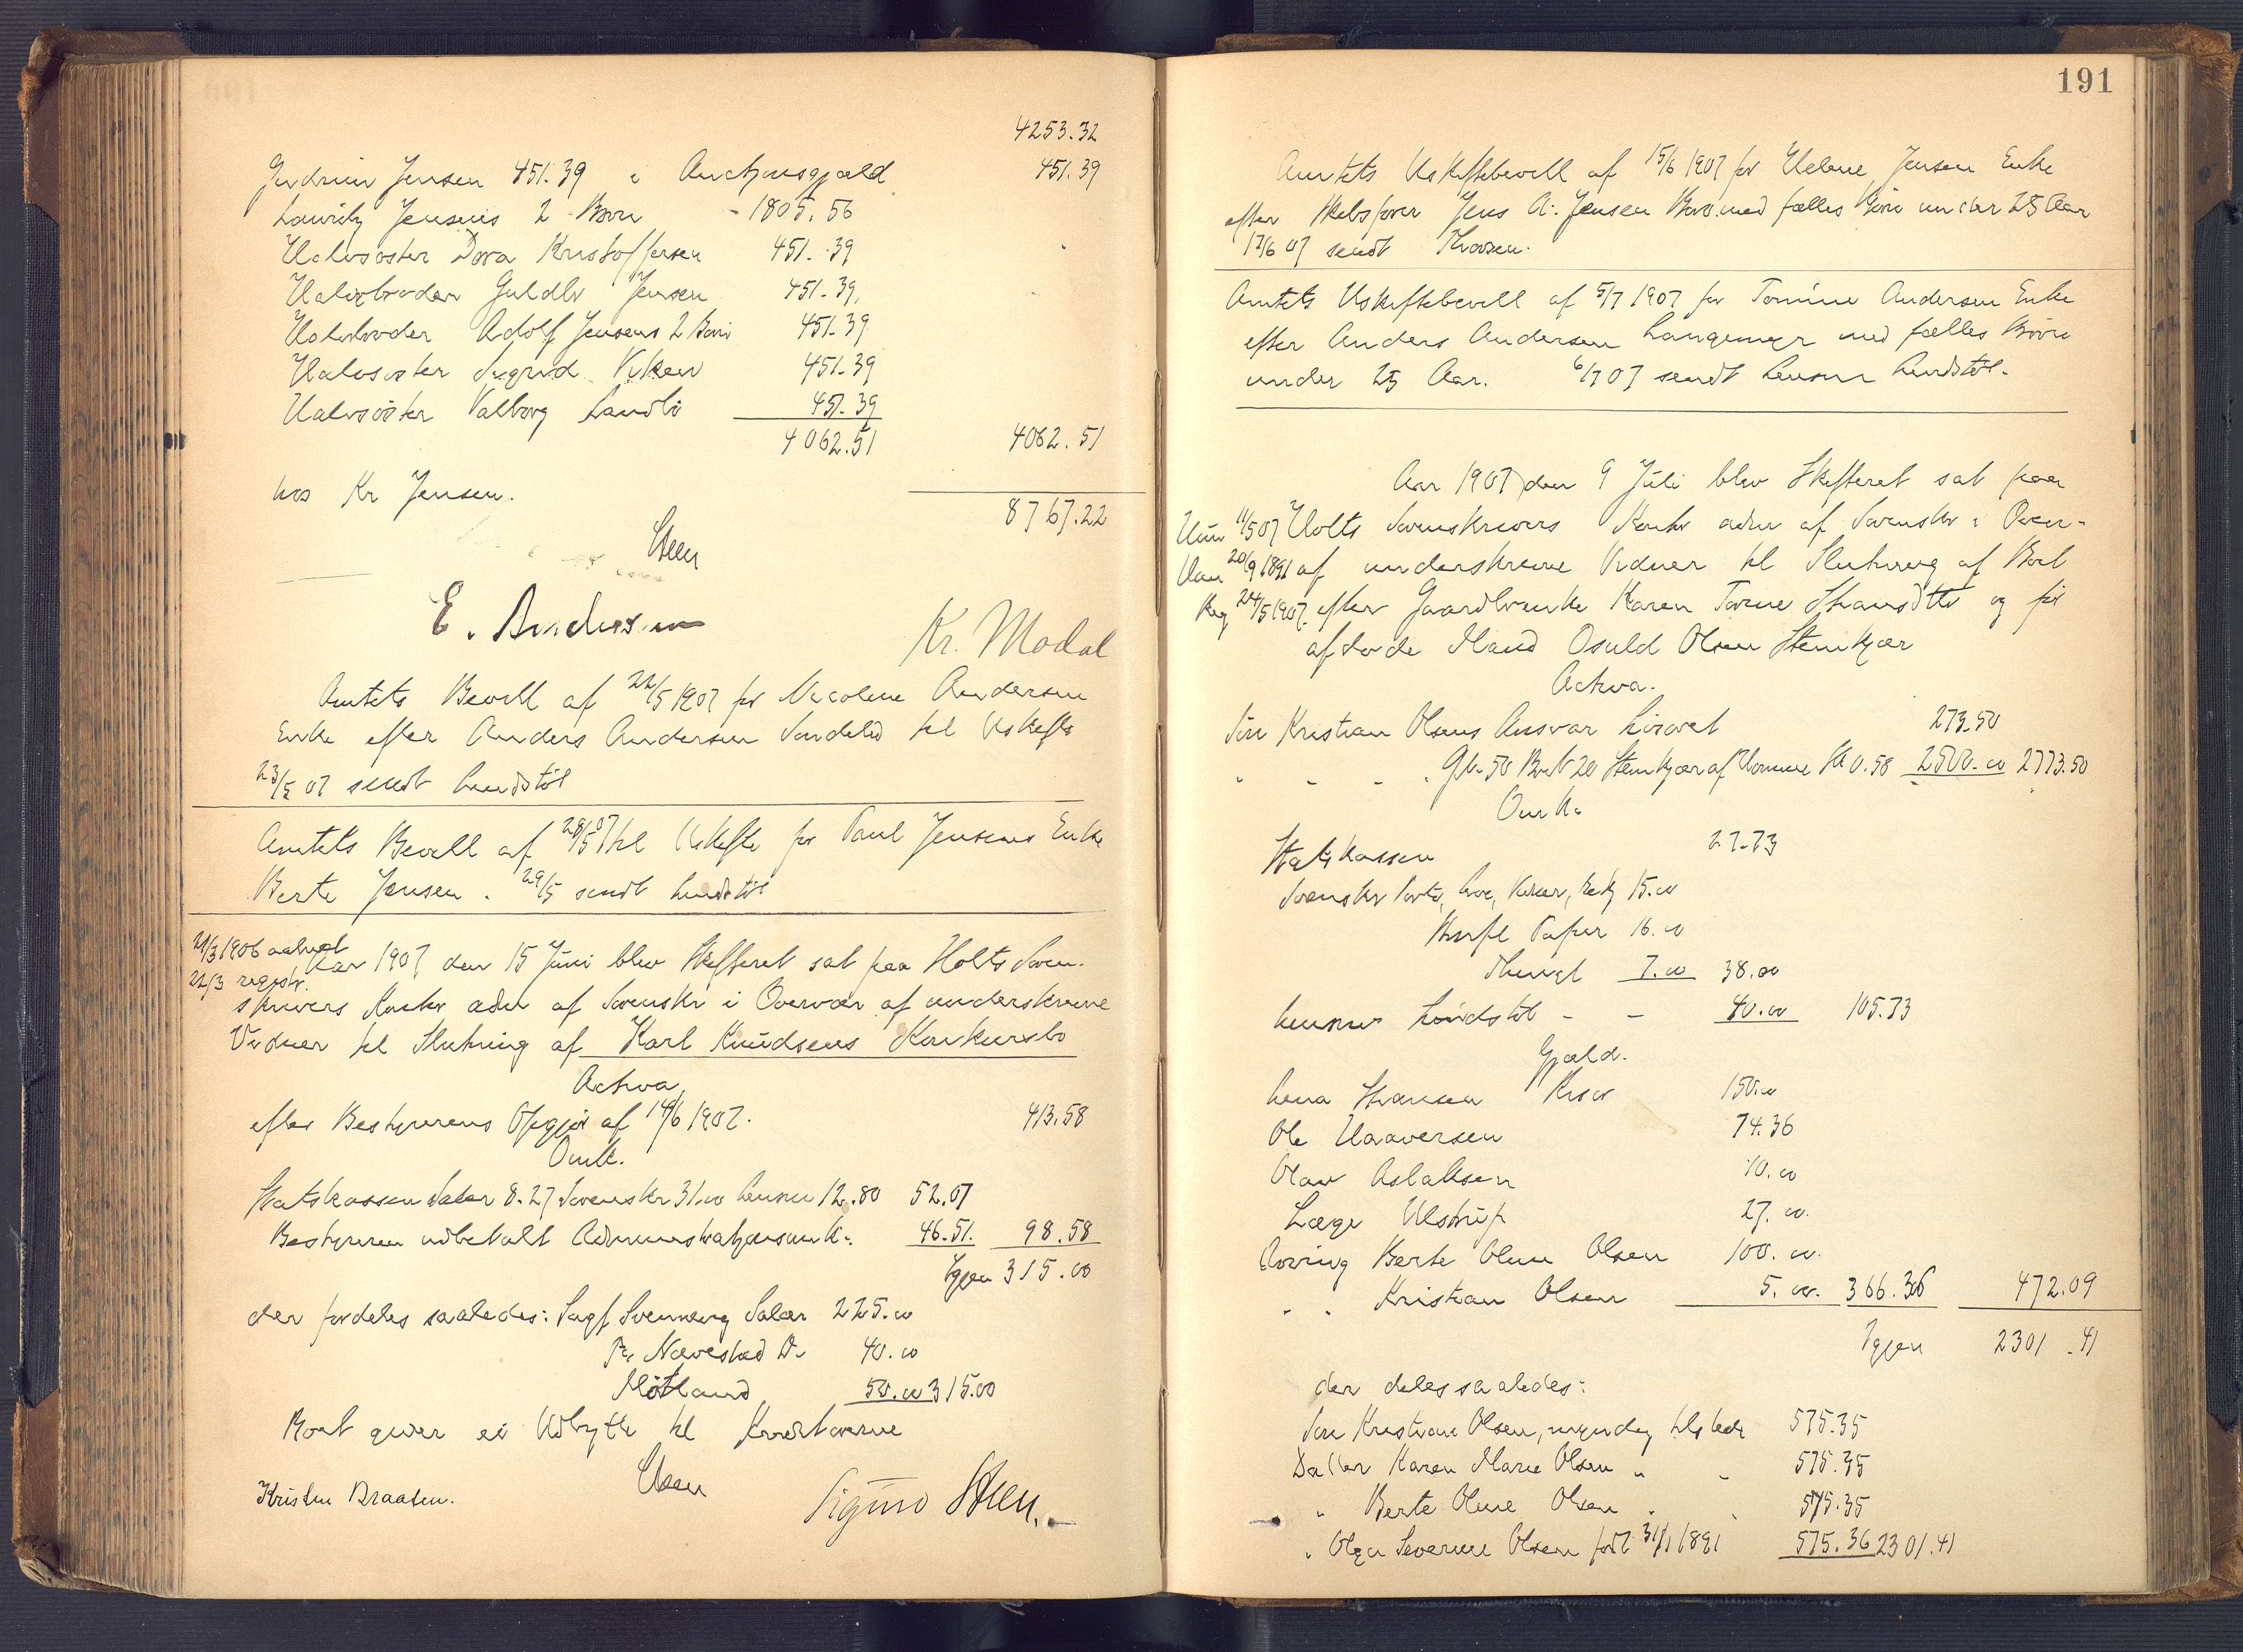 4253.32
Gudrun Jensen 451.39 i Auctionsgjæld 451.39
Lauritz Jensens 2 Børn - 1805.56
Halvsøster Dora Kristoffersen 451.39
Halvbroder Guldbr Jensen 451.39
Halvbroder Adolf Jensens 2 Børn 451.39
Halvsøster Sigrid Viken 451.39
Halvsøster Valborg Landbø 451.39
4062.51 4062.51
hos Kr Jensen.
8767.22
Steen
E. Andersen
Kr. Modal
Amtets Bevill af 22/5 1907 for Nicoline Andersen
Enke efter Anders Andersen Søndeled til Uskifte
23/5 07 sendt Lundstøl
Amtets Bevill af 28/5 07 til Uskifte for Paul Jensens Enke
Berte Jensen. 29/5 sendt Lundstøl
21/3 1906 aabnet
22/3 registr.
Aar 1907 den 15 Juni blev Skifteret sat paa Holts Soren-
skrivers Kontor adm af Sorenskr i Overvær af underskrevne
Vidner til Slutning af Karl Knudsens Konkursbo
Activa
efter Bestyrerens Opgjør af 14/6 1907. 413.58
Omk.
Statskassen Salær 8.27 Sorenskr 31.00 Lensm 12.80 52.07
Bestyreren udbetalt Administrationsomk. 46.51. 98.58
Igjen 315.00
der fordeles saaledes: Sagf Svennevig Salær 225.00
Pr Nævestad Do 40.00
Møtland 50.00 315.00
Boet giver ei Udbytte til Kreditorerne
Steen
Kristen Braaten.
Sigurd Steen.
191
Amtets Uskiftebevill af 15/6 1907 for Helene Jensen Enke
efter Skibsfører Jens A. Jensen Borø med fælles Børn under 25 Aar
17/6 07 sendt Thorsen.
Amtets Uskiftebevill af 5/7 1907 for Tomine Andersen Enke
efter Anders Andersen Langemyr med fælles Børn
under 25 Aar. 6/7 07 sendt Lensm Lundstøl.
Aar 1907 den 9 Juli blev Skifteret sat paa
Hun 11/5 07 Holts Sorenskrivers Kontor adm af Sorenskr i Over-
Han 20/9 1891 af underskrevne Vidner til Slutning af Boet
Reg 24/5 1907. efter Gaardbrenke Karen Torine Stiansdtr og før
afdøde Mand Osuld Olsen Stenkjær
Activa.
Søn Kristian Olsens Ansvar Løsøret 273.50
" - - " Gb. 50 Bn 20 Stenkjær af Homme Sk 0.58 2500.00 2773.50
Omk.
Statskassen 27.73
Sorenskr Porto, Lov, Vidner, Rek 15.00
Stpl Papir 16.00
Thingl 7.00 38.00
Lensm Lundstøl - - 40.00 105.73
Gjæld.
Lena Stiansen Risør 150.00
Ole Haaversen 74.36
Olav Aslaksen 10.00
Læge Ulstrup 27.00.
Arving Berte Oline Olsen 100.00.
" " Kristian Olsen 5.00. 366.36 472.09
Igjen 2301.41
der deles saaledes:
Søn Kristian Olsen, myndig tilstede 575.35
Datter Karen Marie Olsen " - 575.35
" Berte Oline Olsen " " 575.35
" Olga Severine Olsen født 31/1 1891 575.36 2301.41